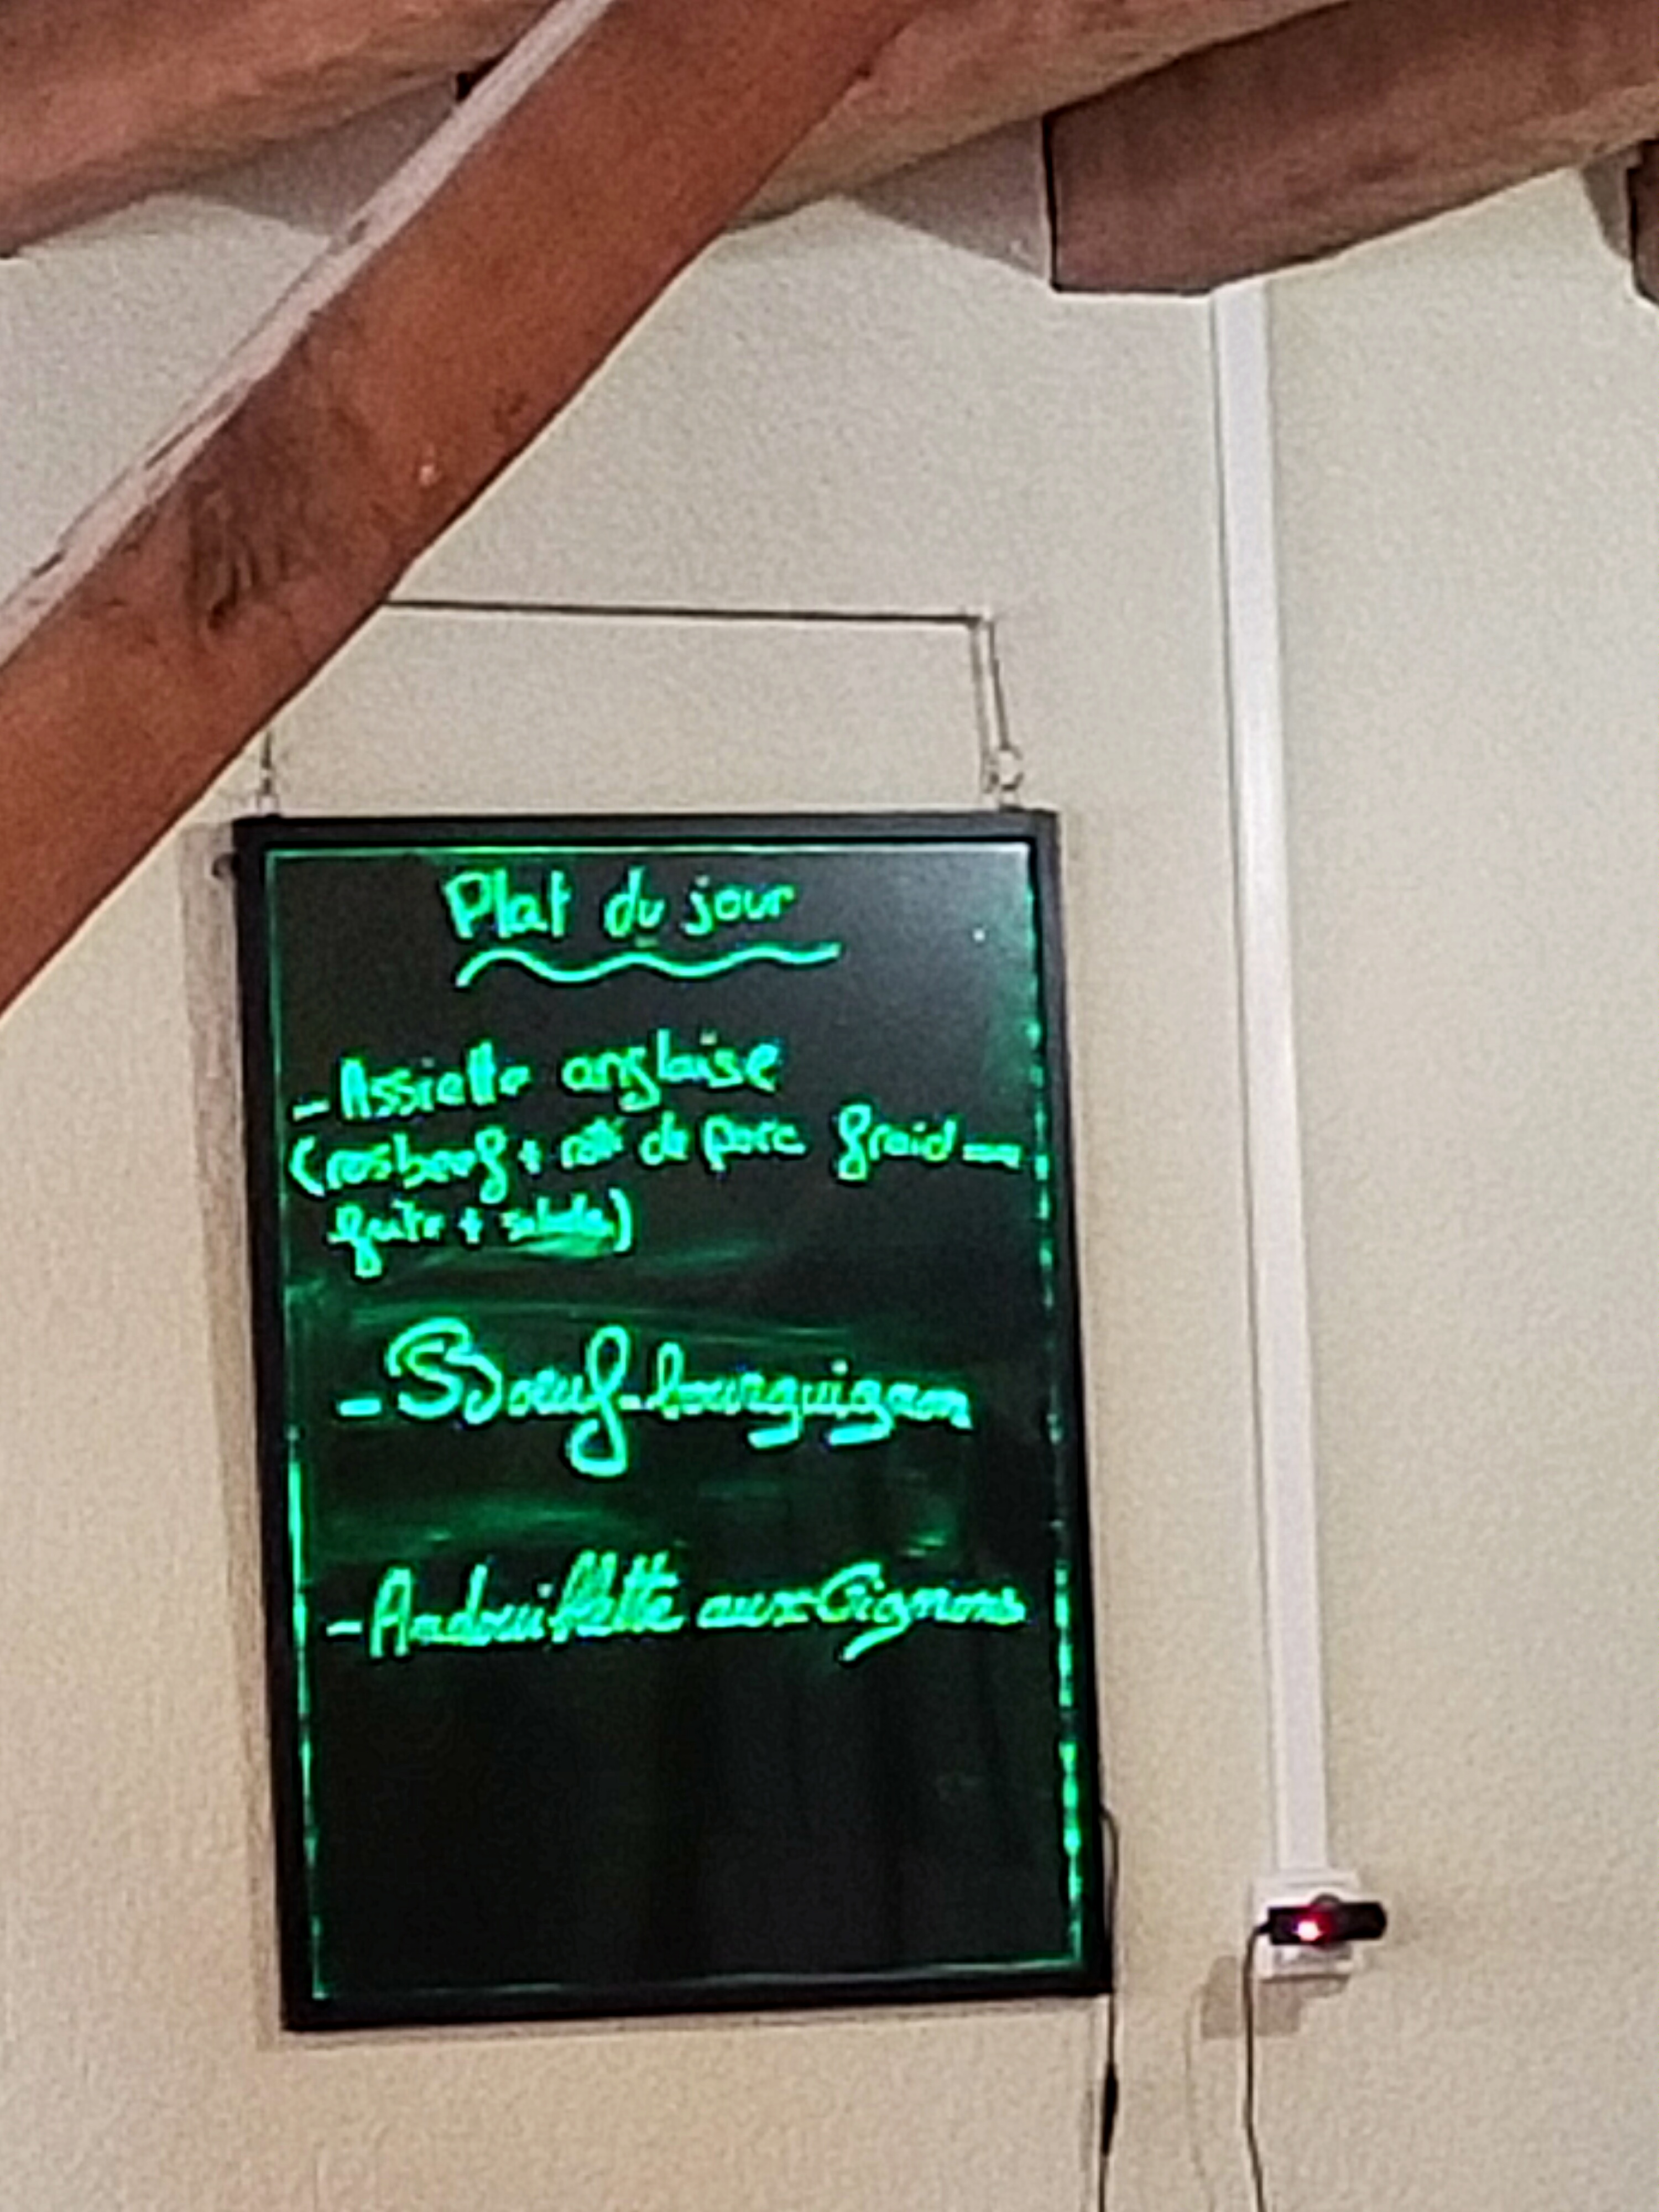 Plat du jour
- Assiette anglaise
(rosbeef + roti de porc froid
frite + salade)
- Boeuf-bourguignon
- Andouillette aux Oignons